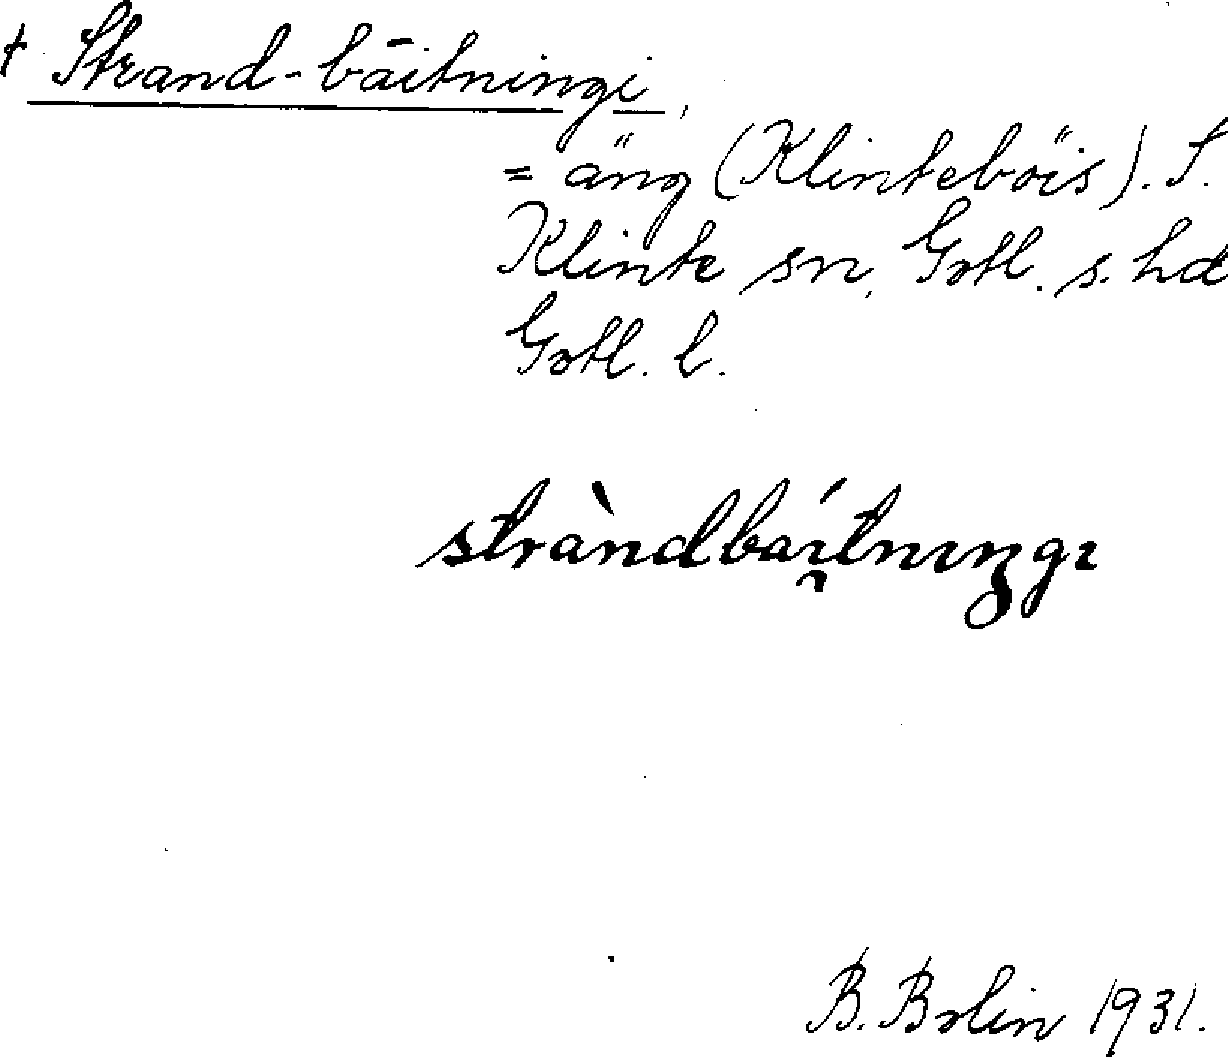 † Strand-bāitningi,
= äng (Klinteböis). S.
Klinte sn, Gotl. s. hd
Gotl. l.
stràndbaı̯́tnıŋgı
B. Bolin 1931.